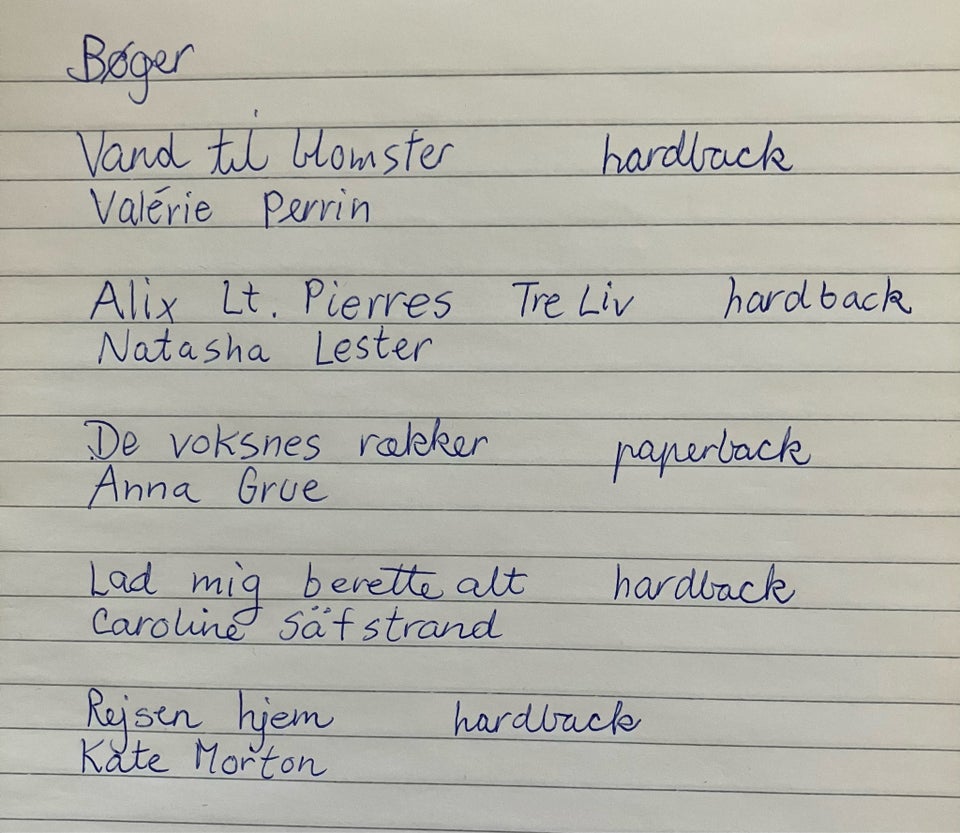 Bøger
Vand til blomster hardback
Valérie Perrin
Alix Lt. Pierres Tre Liv hardback
Natasha Lester
De voksnes rækker paperback
Anna Grue
Lad mig berette alt hardback
Caroline Säfstrand
Rejsen hjem hardback
Kate Morton